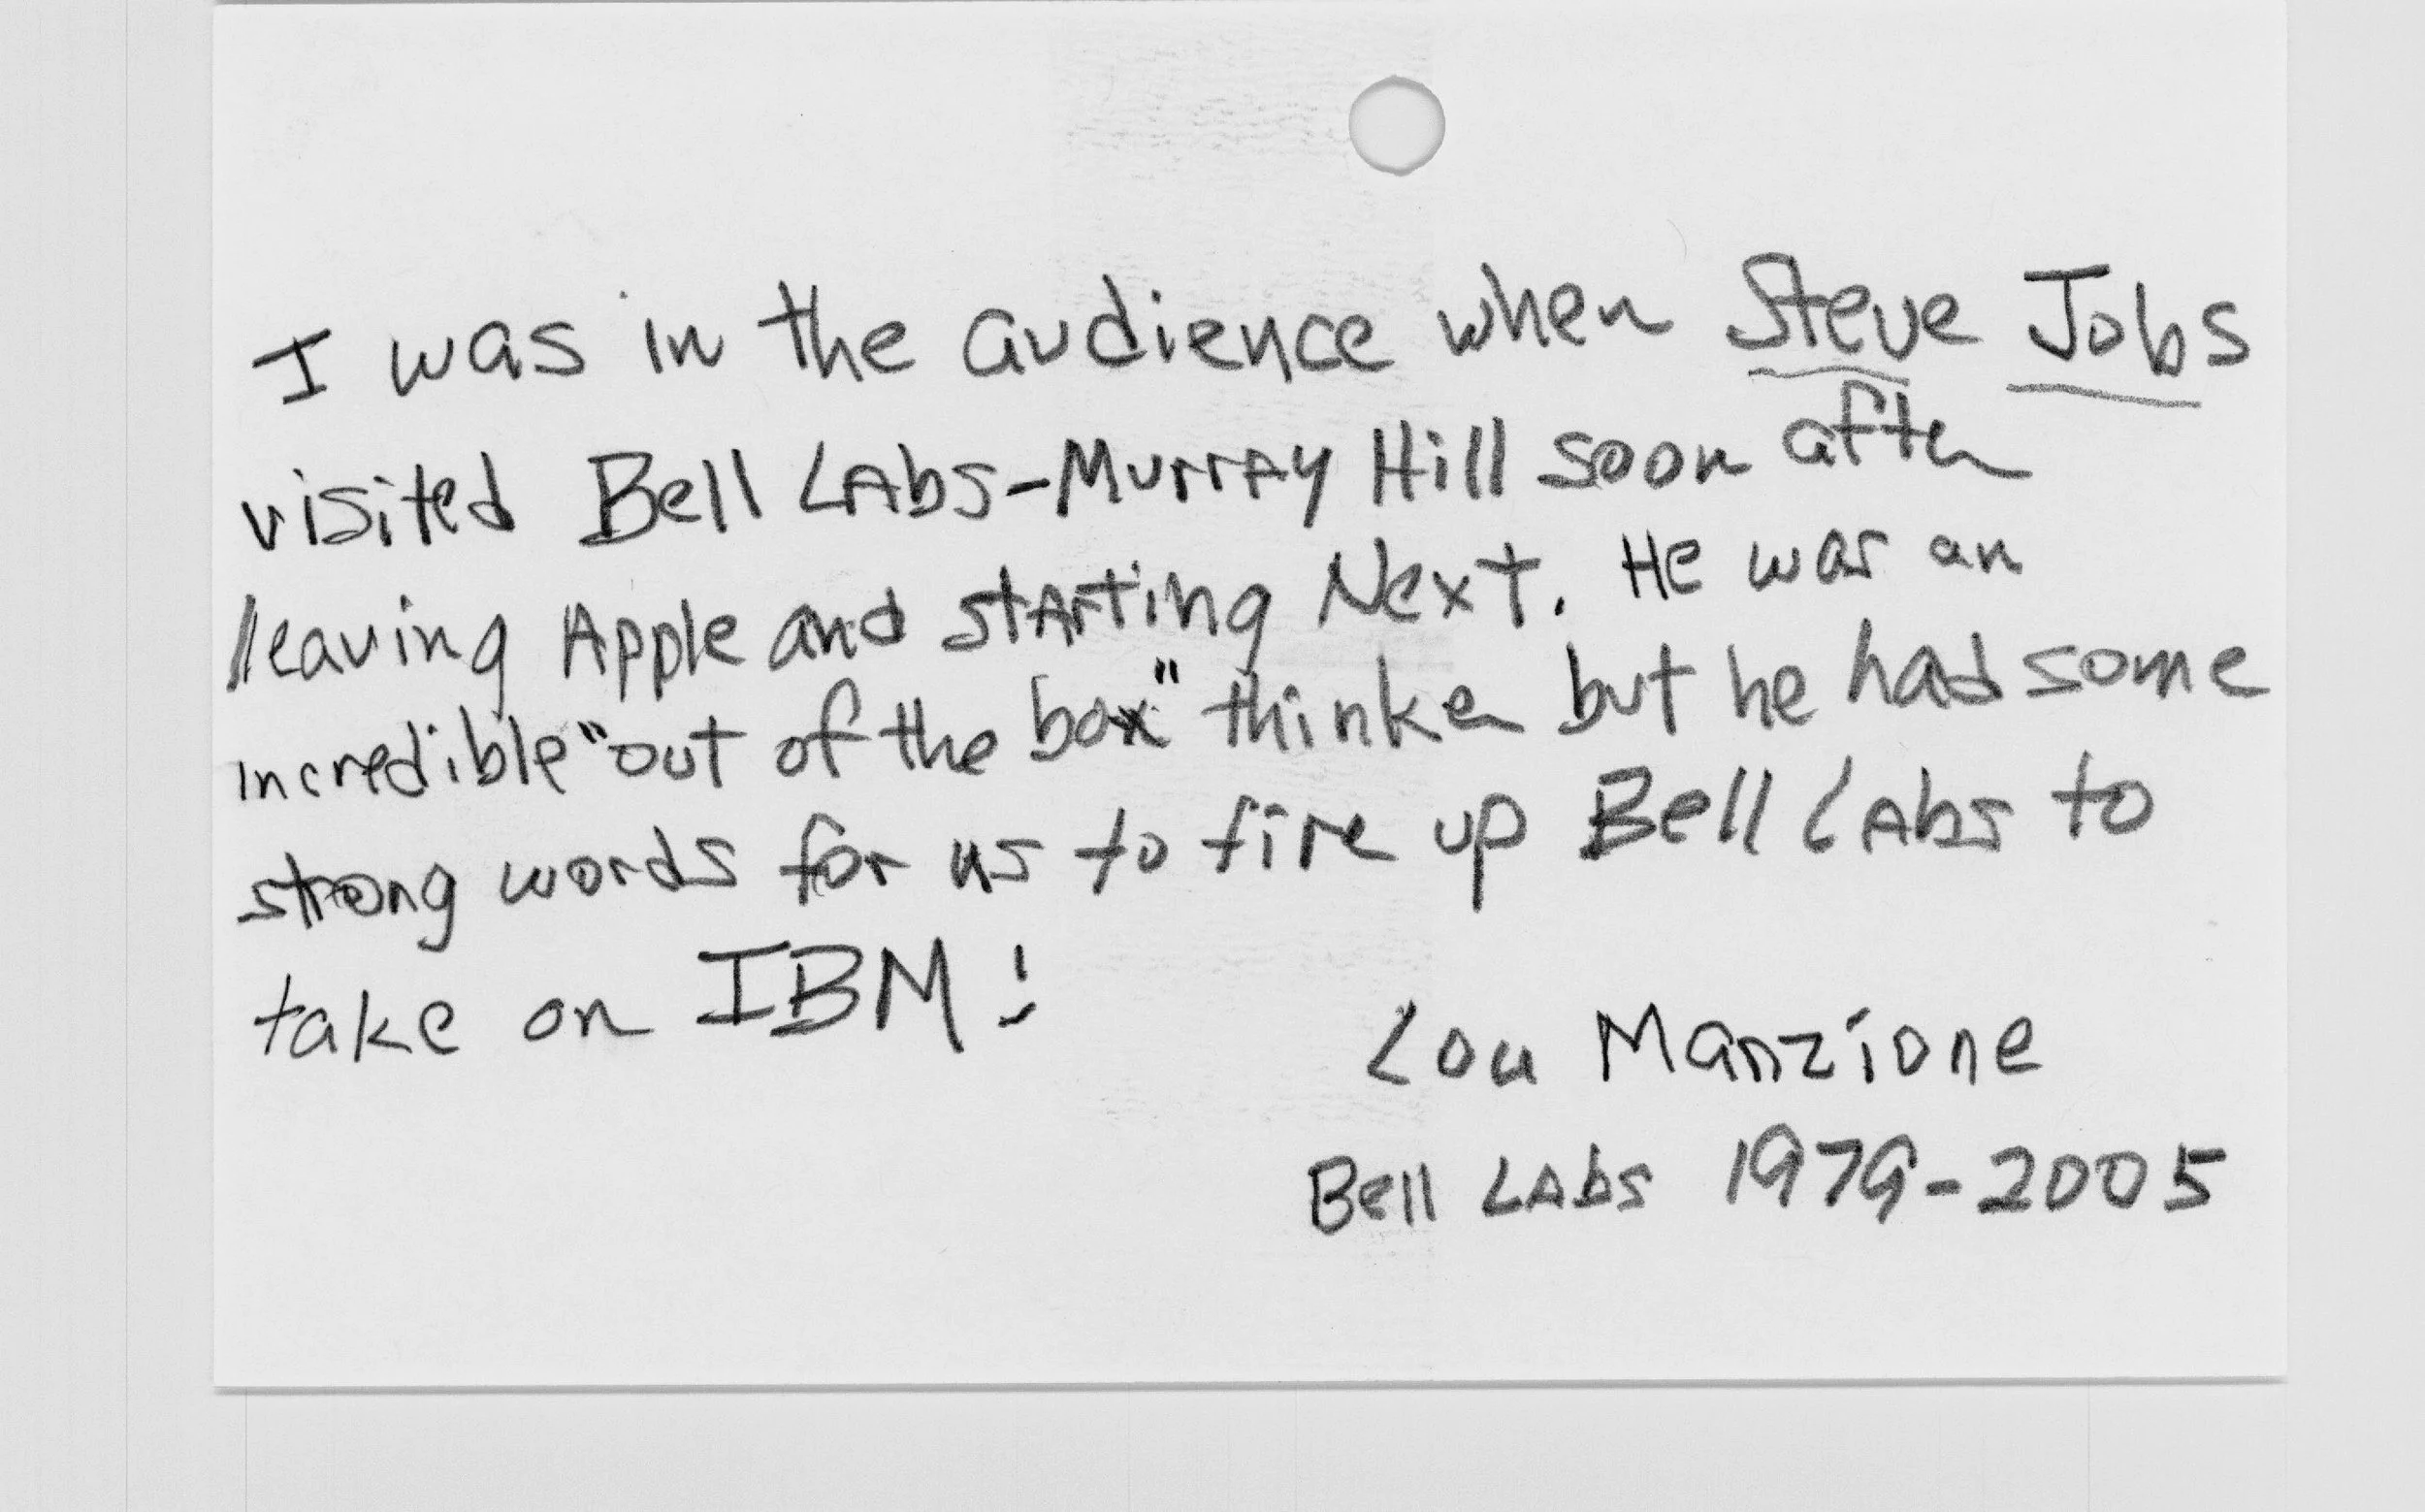 I was in the audience when Steve Jobs
visited Bell Labs-Murray Hill soon after
leaving Apple and starting Next. He was an
incredible "out of the box" thinker but he had some
strong words for us to fire up Bell Labs to
take on IBM!
Lou Manzione
Bell Labs 1979-2005